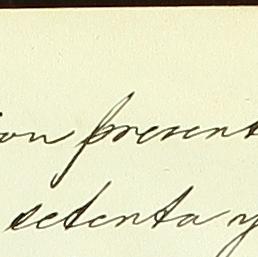 ion present
setenta y